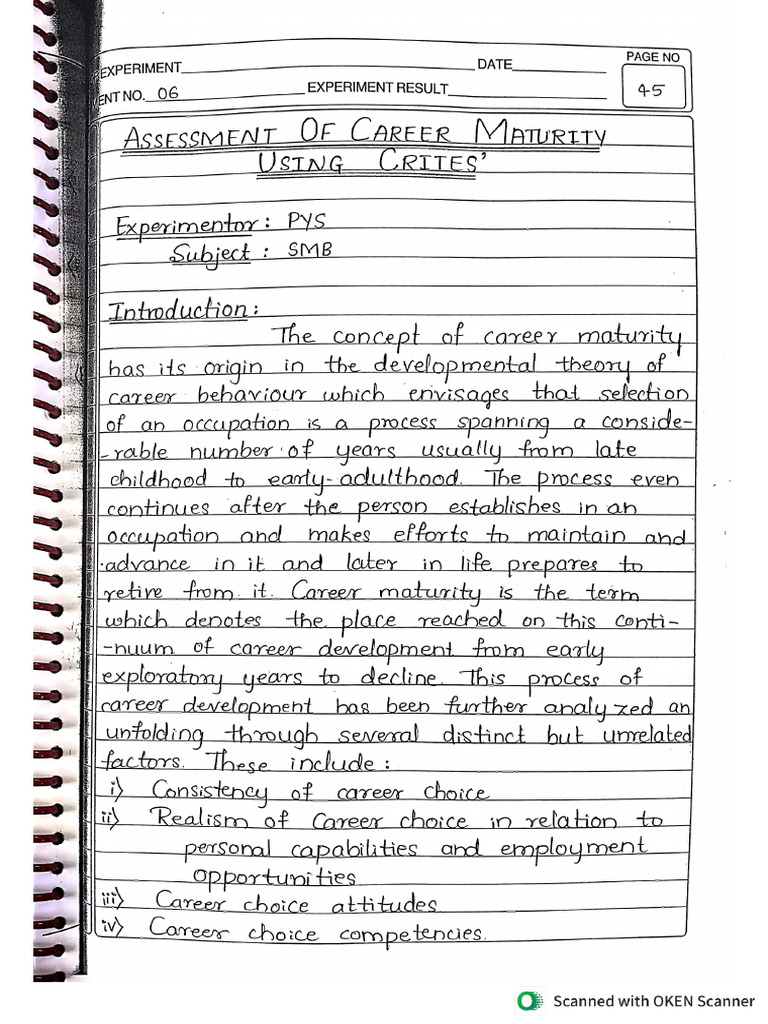 EXPERIMENT DATE PAGE NO
ENT NO. 06 EXPERIMENT RESULT 45
ASSESSMENT OF CAREER MATURITY
USING CRITES'
Experimentor: PYS
Subject : SMB
Introduction:
The concept of career maturity
has its origin in the developmental theory of
career behaviour which envisages that selection
of an occupation is a process spanning a conside-
-rable number of years usually from late
childhood to early-adulthood. The process even
continues after the person establishes in an
occupation and makes efforts to maintain and
advance in it and later in life prepares to
retire from it. Career maturity is the term
which denotes the place reached on this conti-
-nuum of career development from early
exploratory years to decline. This process of
career development has been further analyzed an
unfolding through several distinct but unrelated
factors. These include :
i) Consistency of career choice
ii) Realism of Career choice in relation to
personal capabilities and employment
opportunities
iii) Career choice attitudes
iv) Career choice competencies.
Scanned with OKEN Scanner